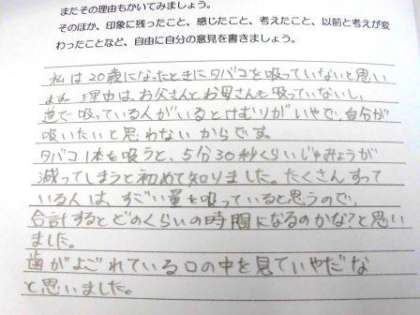 またその理由もかいてみましょう。
そのほか、印象に残ったこと、感じたこと、考えたこと、以前と考えが変
わったことなど、自由に自分の意見を書きましょう。
私は20歳になったときにタバコを吸っていないと思い
ます。理由は、お父さんとお母さんも吸っていないし、
道で吸っている人がいるとけむりがいやで、自分が
吸いたいと思わないからです。
タバコ1本を吸うと、5分30秒くらいじゅみょうが
減ってしまうと初めて知りました。たくさんすって
いる人は、すごい量を吸っていると思うので、
合計するとどのくらいの時間になるのかな?と思い
ました。
歯がよごれている口の中を見ていやだな
と思いました。